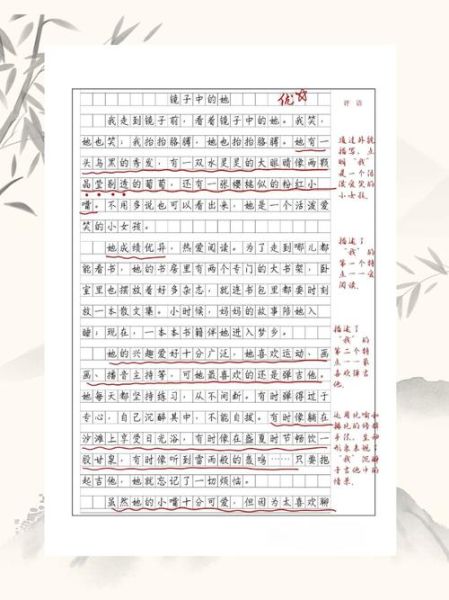 镜子中的她
优
评语
我走到镜子前，看着镜子中的她。我笑，
她也笑；我抬抬胳膊，她也抬抬胳膊。她有一
头乌黑的秀发，有一双水灵灵的大眼睛像两颗
晶莹剔透的葡萄，还有一张樱桃似的粉红小
嘴，不用多说也可以看出来，她是一个活泼爱
笑的小女孩。
她成绩优异，热爱阅读。为了走到哪儿都
能看书，她的书房里有两个专门的大书架，卧
室里也摆放着好多杂志，就连书包里都要时刻
放一本散文集。小时候，妈妈的故事陪她入
睡；现在，一本本书籍伴她进入梦乡。
她的兴趣爱好十分广泛，她喜欢运动、画
画、播音主持等，可她最喜欢的还是弹吉他。
她每天都坚持练习，从不间断。有时弹得过于
专心，自己沉醉其中，不能自拔。有时像躺在
沙滩上享受日光浴，有时像在盛夏时节畅饮一
股甘泉，有时像听到雷雨般的轰鸣……只要抱
起吉他，她就忘记了一切烦恼。
虽然她的小嘴十分可爱，但因为太喜欢聊
通过外貌
描写，点
明“我”
是一个活
泼爱笑的
小女孩。
描述了
“我”的
第一个特
点——爱
阅读。
描述了
“我”的
第二个特
点——最
喜欢弹吉
他。
运用比喻和
排比的修辞
手法，生动
形象表现了
“我”沉醉
于吉他中的
情景。